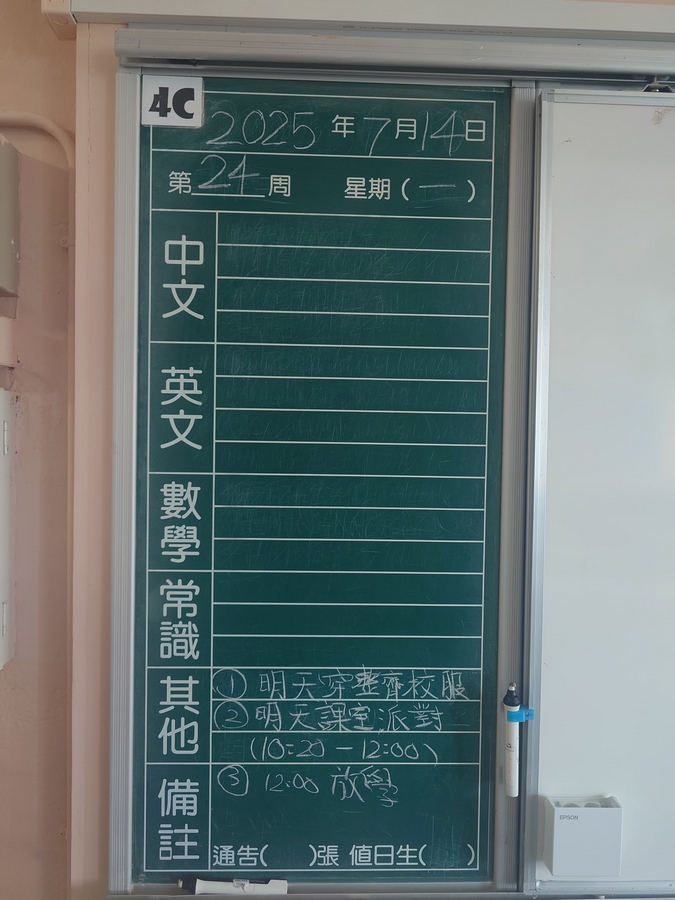 4C
2025年7月14日
第24周 星期(一)
中文
英文
數學
常識
其他
①明天穿整齊校服
②明天課室派對
(10:20-12:00)
備註
③12:00 放學
通告( )張 值日生( )
EPSON